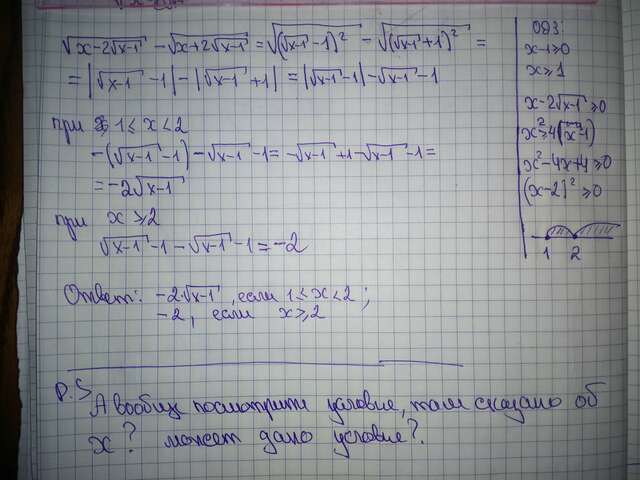 √(x-2√(x-1)) - √(x+2√(x-1)) = √((√(x-1) -1)²) - √((√(x-1) +1)²) =
= |√(x-1) -1| - |√(x-1) +1| = |√(x-1) -1| - √(x-1) -1
при 1 ≤ x < 2
-(√(x-1) -1) - √(x-1) -1 = -√(x-1) +1 -√(x-1) -1 =
= -2√(x-1)
при x ≥ 2
√(x-1) -1 - √(x-1) -1 = -2
Ответ: -2√(x-1), если 1 ≤ x < 2;
-2, если x ≥ 2
P.S А вообще, посмотрите условие, там сказано об
x? может дано условие?
ОДЗ:
x-1 ≥ 0
x ≥ 1
x-2√(x-1) ≥ 0
x² ≥ 4(x-1)
x²-4x+4 ≥ 0
(x-2)² ≥ 0
1 2